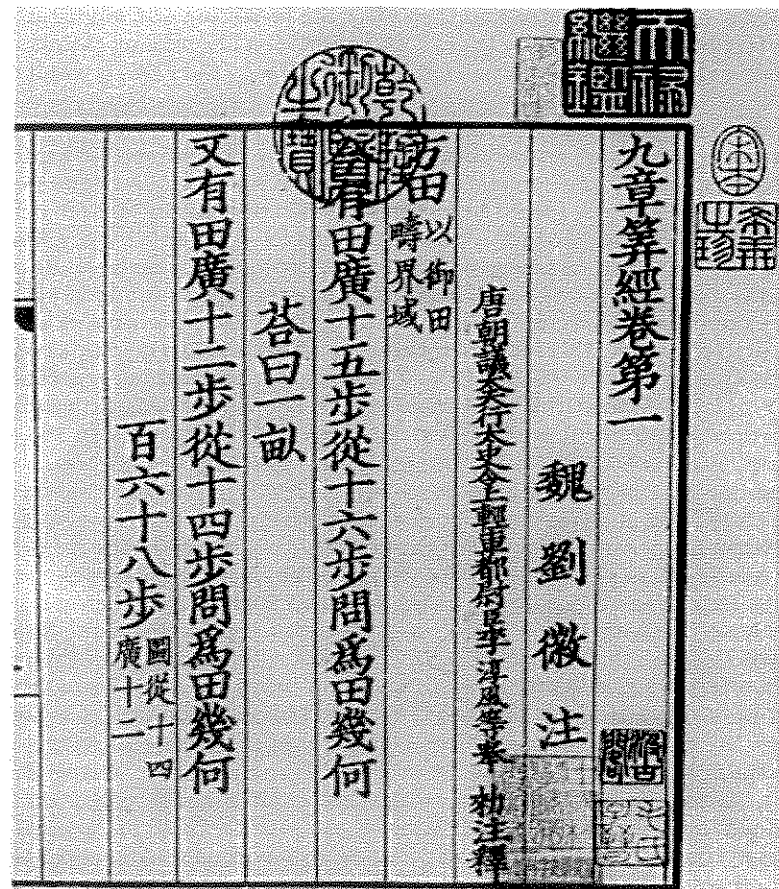 天祿繼鑑
乾隆御覽之寶
宋本
希世之珍
九章筭經卷第一
魏劉徽注
唐朝議大夫行太史令上輕車都尉臣李淳風等奉 勑注釋
方田以御田
疇界域
今有田廣十五步從十六步問爲田幾何
荅曰一畝
又有田廣十二步從十四步問爲田幾何
百六十八步圖從十四
廣十二